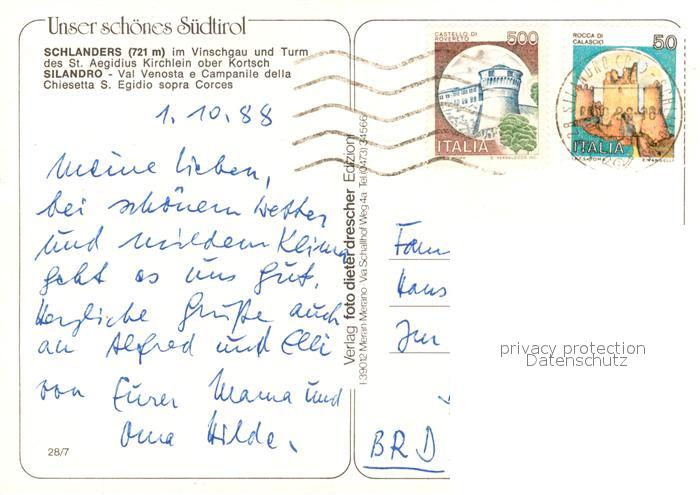 Unser schönes Südtirol
SCHLANDERS (721 m) im Vinschgau und Turm
des St. Aegidius Kirchlein ober Kortsch
SILANDRO - Val Venosta e Campanile della
Chiesetta S. Egidio sopra Corces
1.10.88
Meine Lieben,
bei schönem Wetter
und mildem Klima
geht es uns gut.
Herzliche Grüße auch
an Alfred und Elli
von Eurer Mama und
Oma Hilde.
28/7
Verlag foto dieter drescher Edizioni
I-39012 Meran Merano · Via Schafhof Weg 4a Tel. (0473) 34566
CASTELLO DI
ROVERETO
500
ITALIA
ROCCA DI
CALASCIO
50
ITALIA
Fam
Hans
BRD
privacy protection
Datenschutz